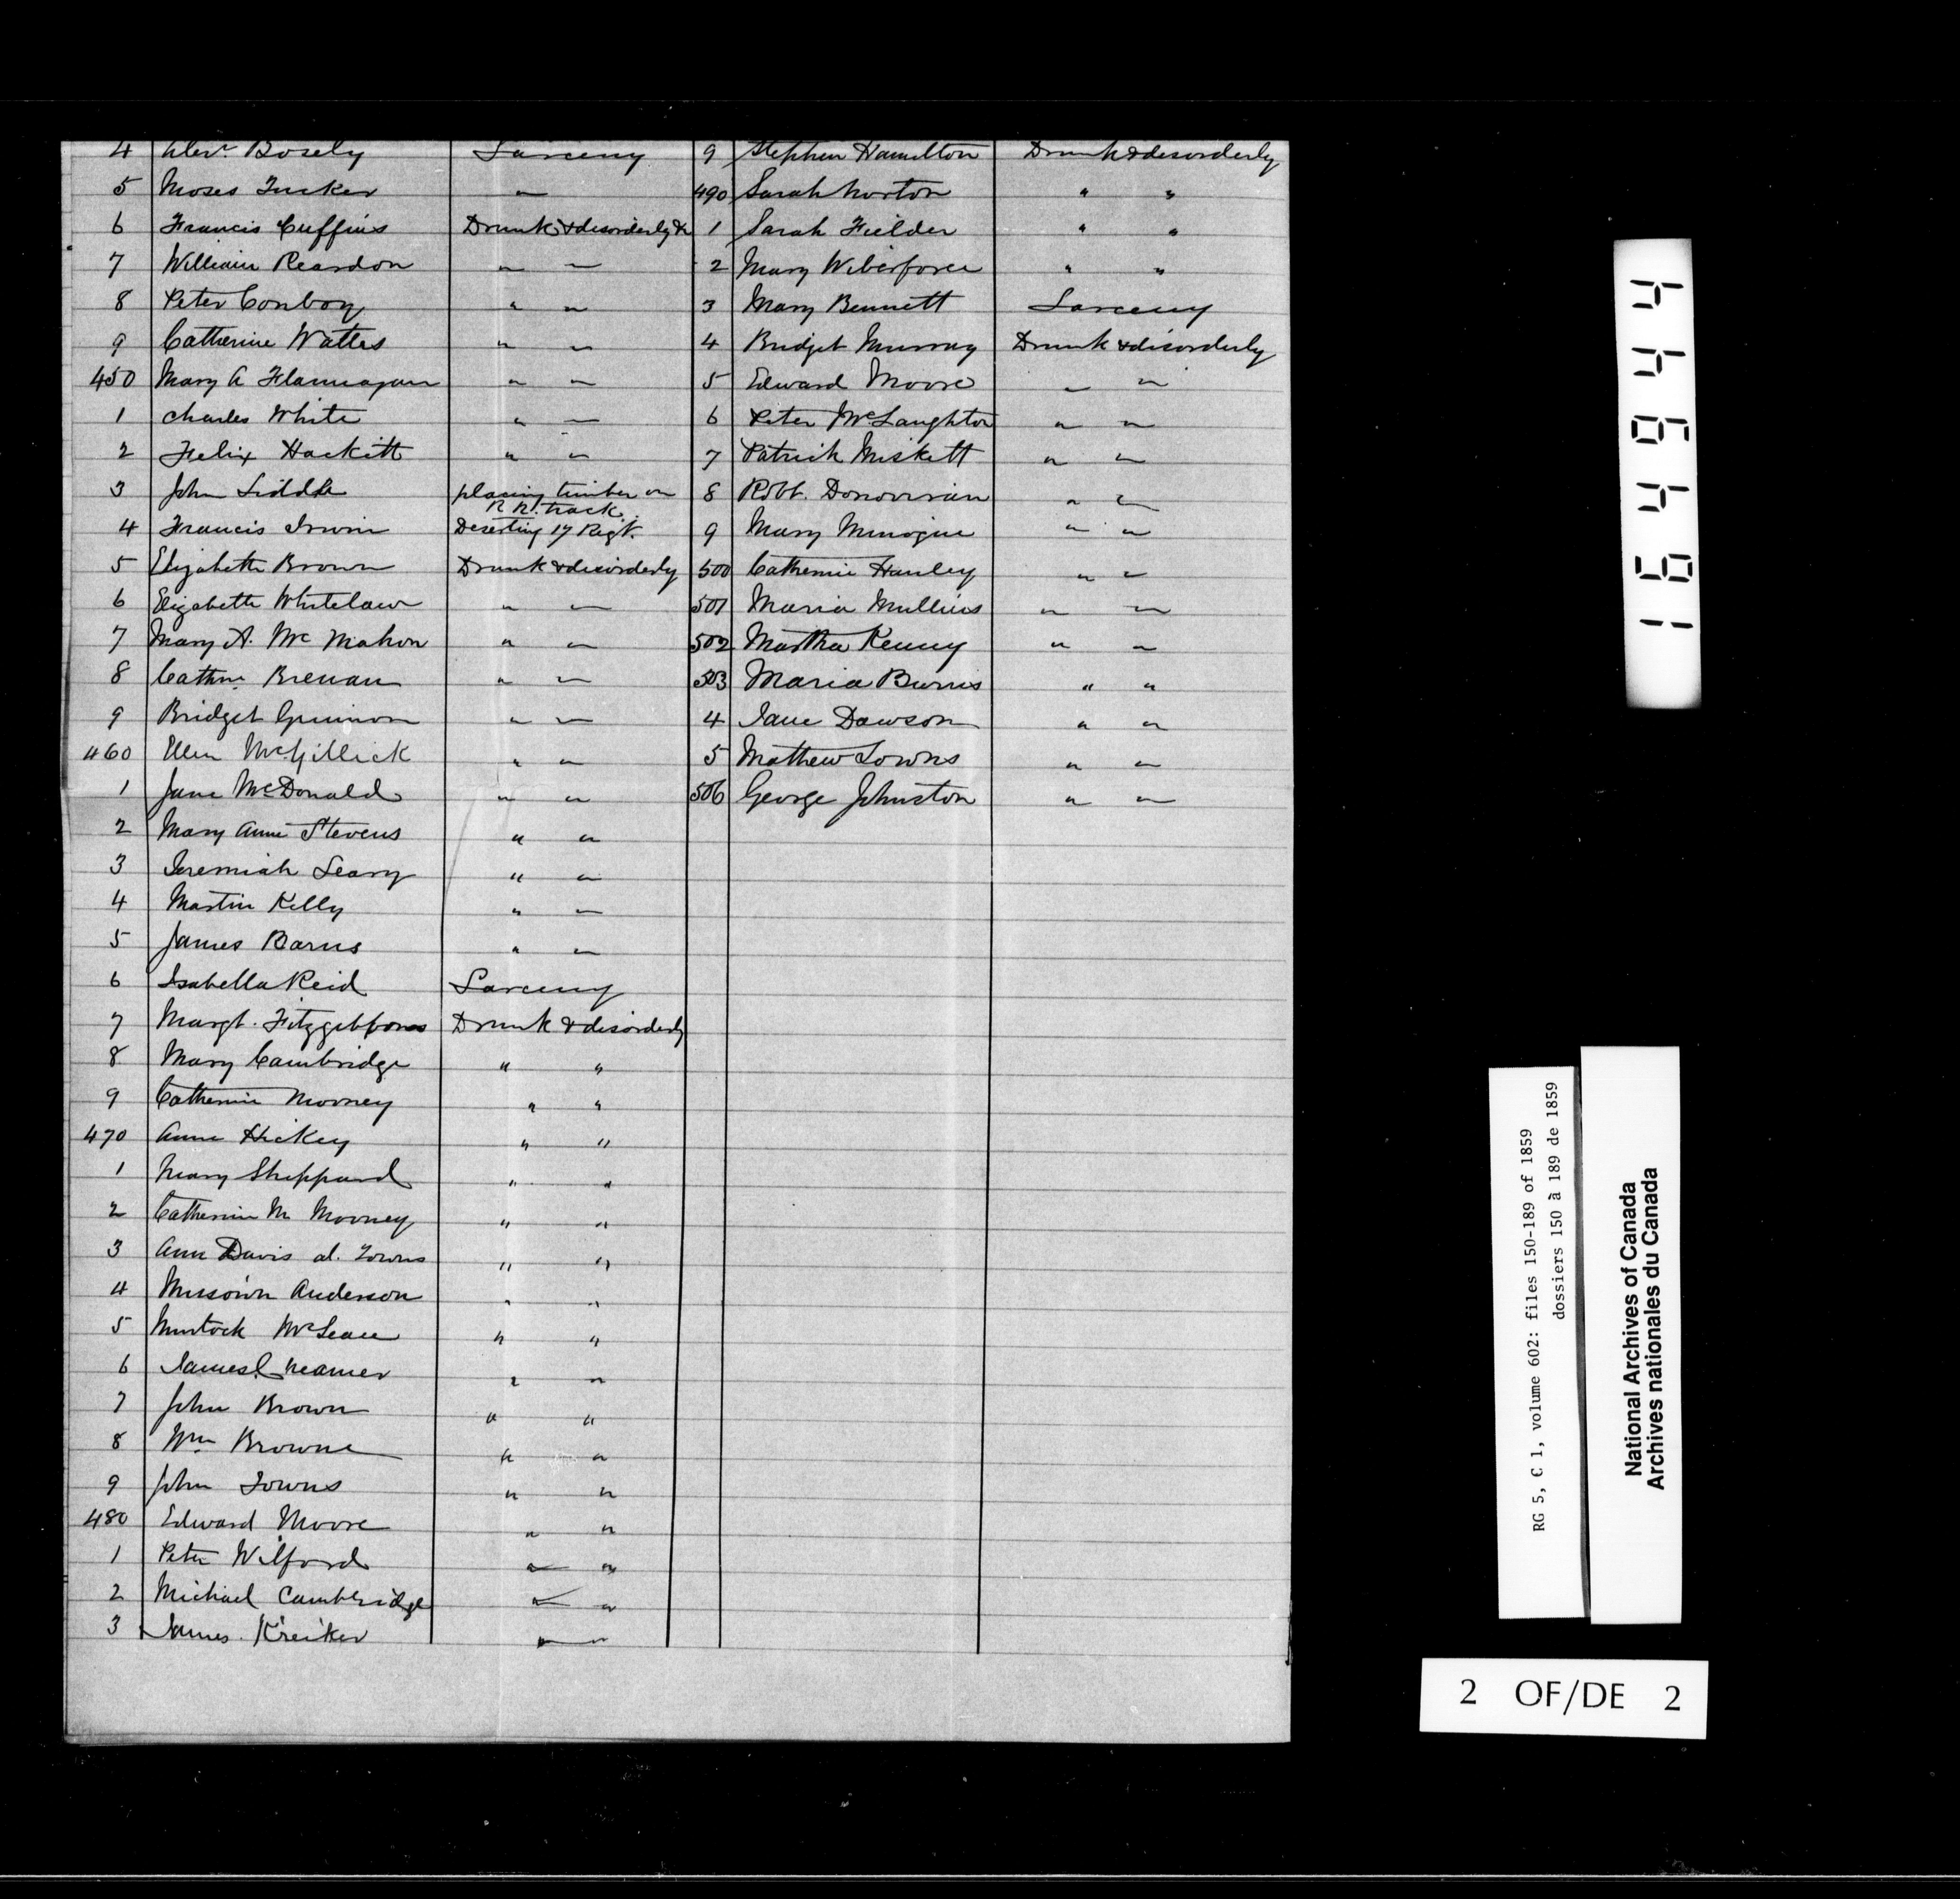 4 Alexr. Bosely Larceny
5 Moses Tucker "
6 Francis Cuffins Drunk & disorderly &c
7 William Reardon " "
8 Peter Conboy " "
9 Catherine Watters " "
450 Mary A Flannagan " "
1 Charles White " "
2 Felix Hackett " "
3 John Liddle placing timber on
R R. track
4 Francis Irwin Deserting 17 Regt.
5 Elizabeth Brown Drunk & disorderly
6 Elizabeth Whitelaw " "
7 Mary A. McMahon " "
8 Cathne Brenan " "
9 Bridget " "
460 Ellen McGillick " "
1 Jane McDonald " "
2 Mary Anne Stevens " "
3 Jeremiah Leary " "
4 Martin Kelly " "
5 James Barns " "
6 Isabella Reid Larceny
7 Margt. Fitzgibbons Drunk & disorderly
8 Mary Cambridge " "
9 Catherine Mooney " "
470 Anne Hickey " "
1 Mary Sheppard " "
2 Catherine M Mooney " "
3 Ann Davis al. Towns " "
4 Anderson " "
5 Murtock McLean " "
6 James " "
7 John Brown " "
8 Wm Browne " "
9 John Towns " "
480 Edward Moore " "
1 Peter Wilford " "
2 Michael Cambridge " "
3 James Kreiker " "
9 Stephen Hamilton Drunk & disorderly
490 Sarah Norton " "
1 Sarah Fielder " "
2 Mary Wiberforce " "
3 Mary Bennett Larceny
4 Bridget Murray Drunk & disorderly
5 Edward Moore " "
6 Peter McLaughton " "
7 Patrick Miskett " "
8 Robt. Donovan " "
9 Mary Minogue " "
500 Catherine Hanley " "
501 Maria Mullins " "
502 Martha Kenny " "
503 Maria Burns " "
4 Jane Dawson " "
5 Mathew Towns " "
506 George Johnston " "
196494
RG 5, C 1, volume 602: files 150-189 of 1859
dossiers 150 à 189 de 1859
National Archives of Canada
Archives nationales du Canada
2 OF/DE 2